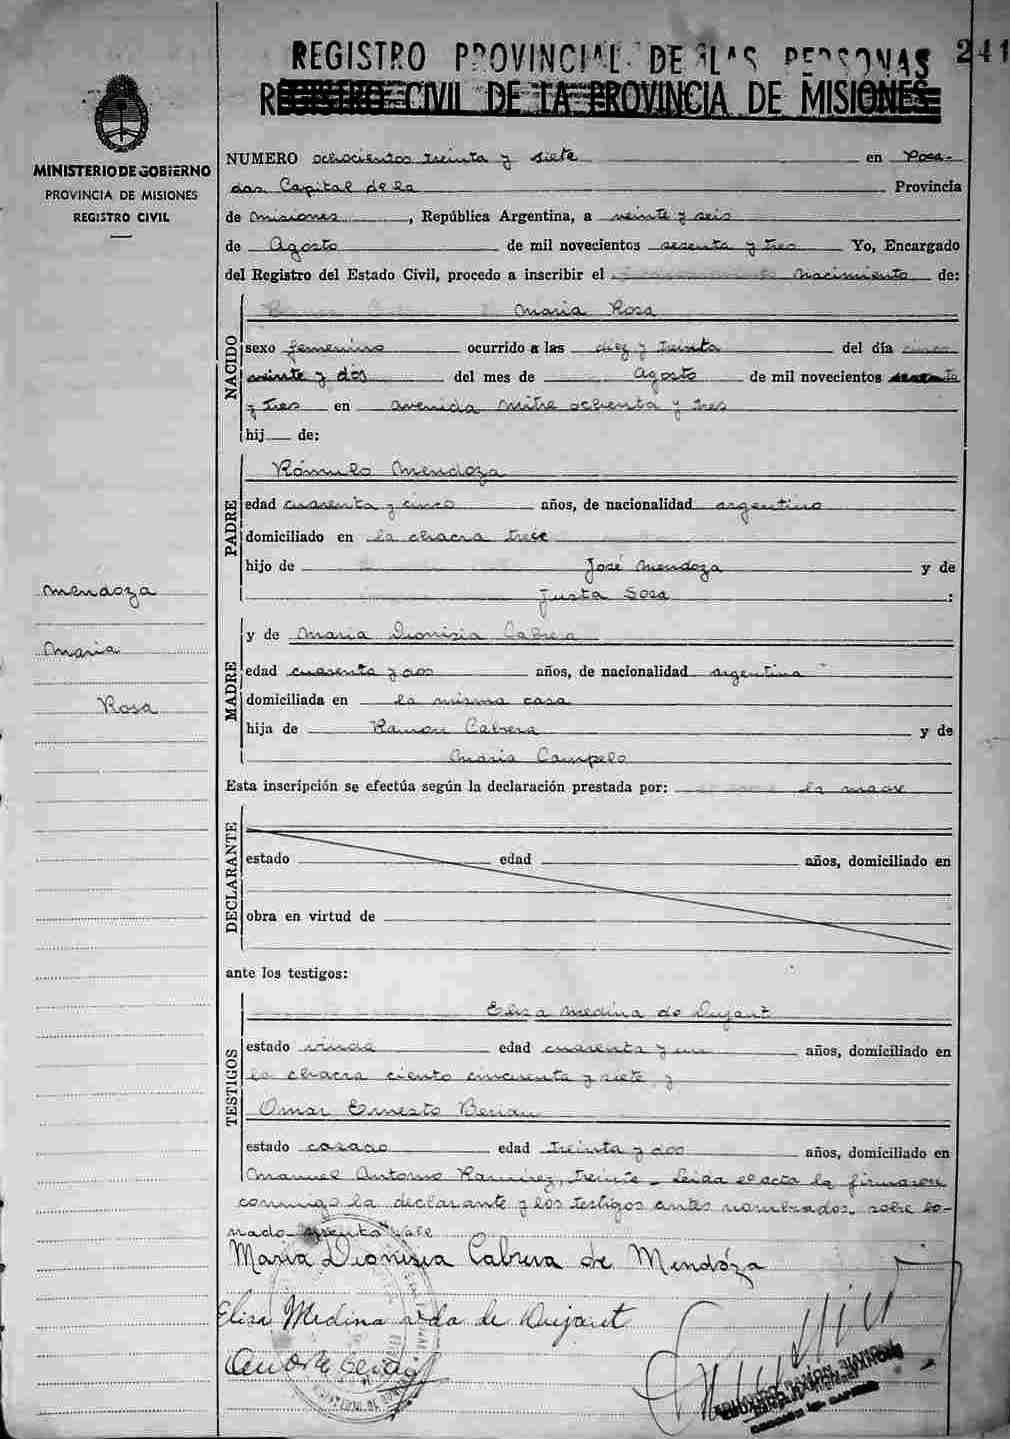 REGISTRO PROVINCIAL DE LAS PERSONAS
241
REGISTRO CIVIL DE LA PROVINCIA DE MISIONES
MINISTERIO DE GOBIERNO
PROVINCIA DE MISIONES
REGISTRO CIVIL
NUMERO ochocientos treinta y siete en Posa-
das Capital de la Provincia
de Misiones, República Argentina, a veinte y seis
de Agosto de mil novecientos sesenta y tres Yo, Encargado
del Registro del Estado Civil, procedo a inscribir el nacimiento de:
NACIDO
Maria Rosa
sexo femenino ocurrido a las diez y treinta del día
veinte y dós del mes de Agosto de mil novecientos sesenta
y tres en avenida mitre ochenta y tres
hij de:
PADRE
Rómulo Mendoza
edad cuarenta y cinco años, de nacionalidad argentino
domiciliado en la chacra trece
hijo de José Mendoza y de
Justa Sosa :
Mendoza
Maria
Rosa
MADRE
y de Maria Dionisia Cabrera
edad cuarenta y dos años, de nacionalidad argentina
domiciliada en la misma casa
hija de Ramon Cabrera y de
Maria Campelo
Esta inscripción se efectúa según la declaración prestada por: la madre
DECLARANTE
estado edad años, domiciliado en
obra en virtud de
ante los testigos:
TESTIGOS
Elisa Medina de Dujaut
estado viuda edad cuarenta y un años, domiciliado en
la chacra ciento cincuenta y siete y
Omar Ernesto
estado casado edad treinta y dos años, domiciliado en
Manuel Antonio Ramirez, treinta - Leida el acta la firmaron
conmigo la declarante y los testigos antes nombrados. sobre bo-
rrado Vale
Maria Dionisia Cabrera de Mendóza
Elisa Medina vda de Dujaut